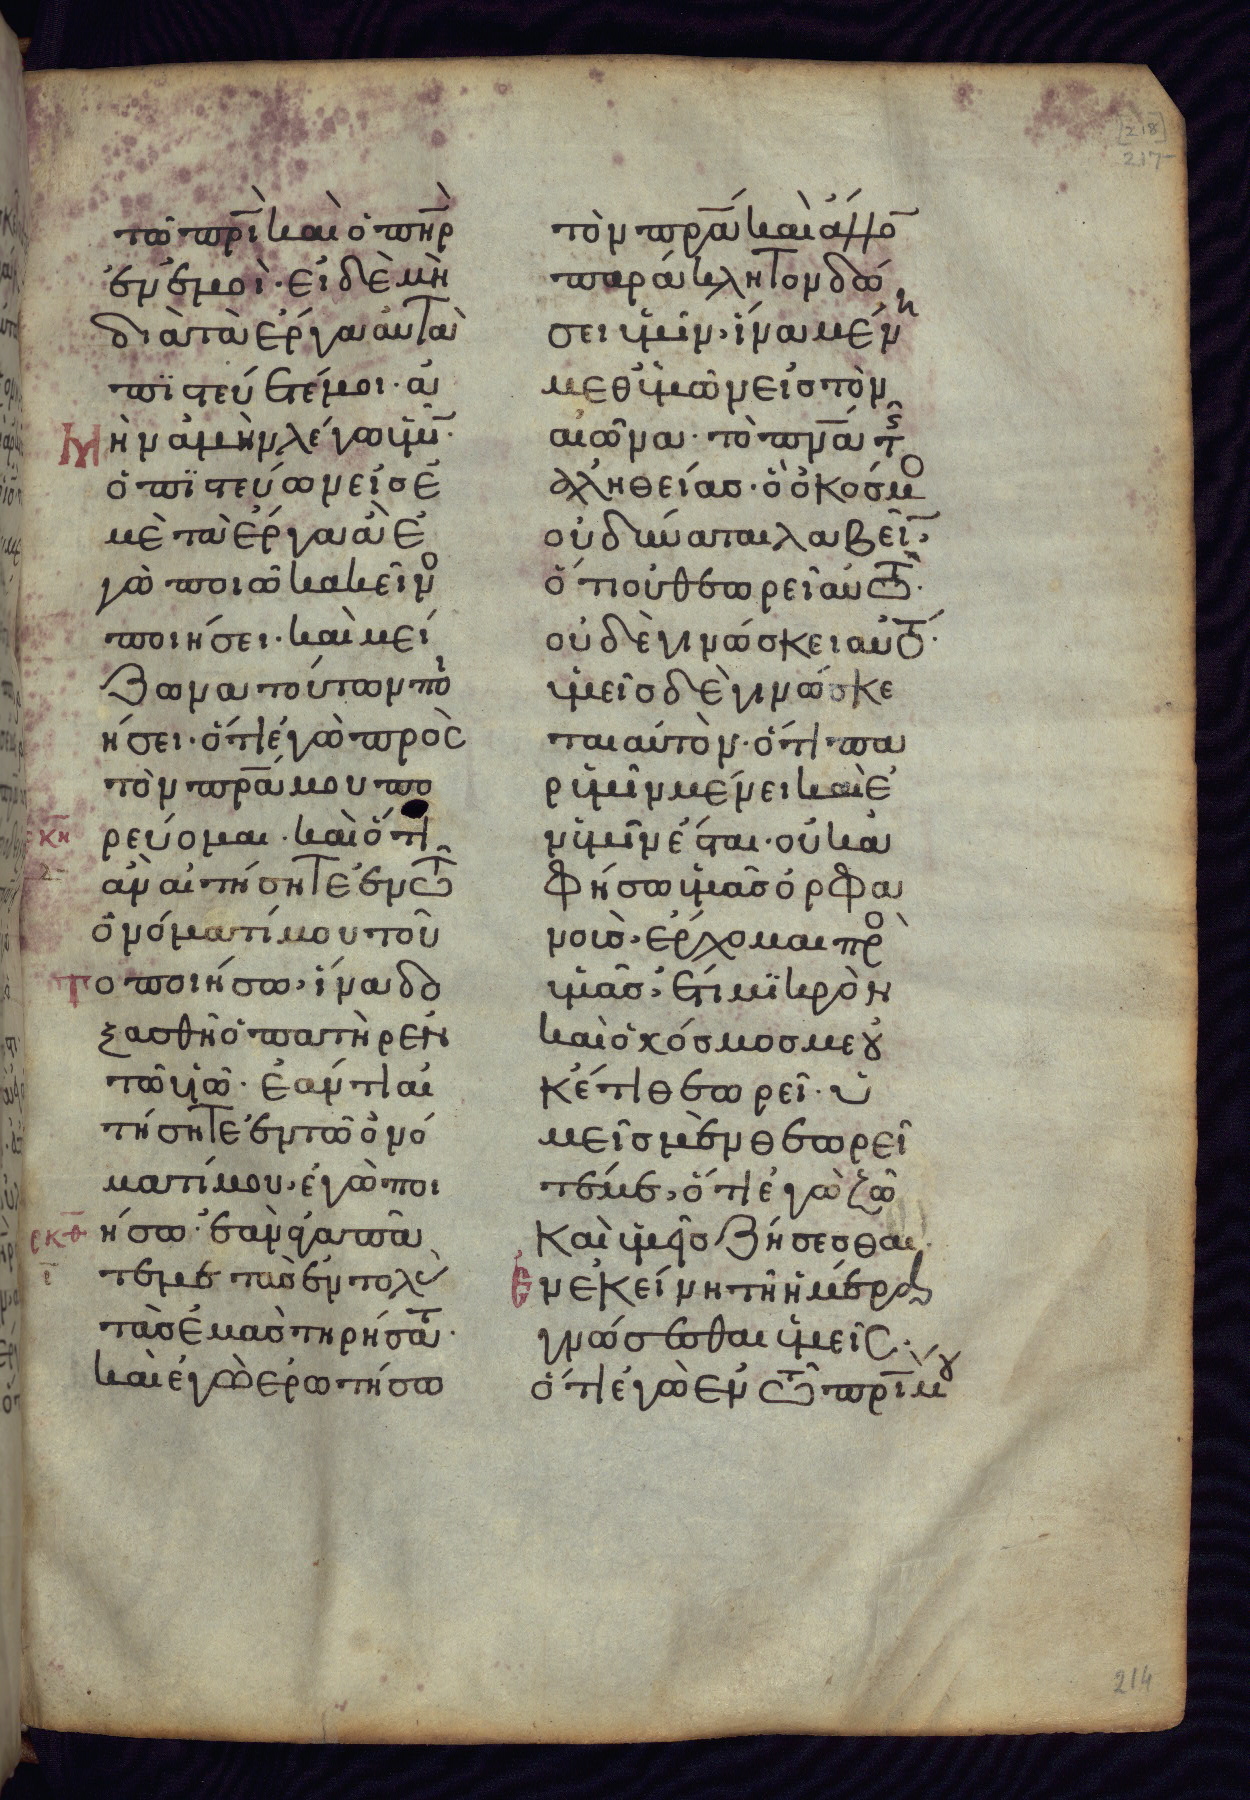 [218]
217
τῶ πρ̅ὶ καὶ ὁ πη̅ρ
ἐν ἐμοὶ· εἰ δὲ μὴ
διὰ τὰ ἔργα αὐτὰ
πϊστεύετέ μοι· ἀ
Μὴν ἀμὴν λέγω ὑμῖ̅·
ὁ πϊστεύων εἰς ἐ
μὲ τὰ ἔργα ἃ ἐ
γὼ ποιῶ κακεῖνο
ποιήσει· καὶ μεί
ζωνα τούτων πο
ιήσει· ὅτι ἐγὼ πρὸς
τὸν πρ̅α μου πο
κη
ρεύομαι· καὶ ὅτι
ἀν αἰτήσητε ἐν τῶ
ὀνόματί μου τοῦ
το ποιήσω, ἵνα δο
ξασθῆ ὁ πατὴρ ἐν
τῶ υἱῶ· ἐάν τι αἰ
τήσητε ἐν τῶ ὀνό
ματί μου, ἐγὼ ποι
ρκθ
ήσω· ἐὰν ἀγαπᾶ
ι
τέ με τὰς ἐντολὰ
τὰς ἐμὰς τηρήσατ·
καὶ ἐγὼ ἐρωτήσω
τὸν πρ̅α καὶ ἄλλο̅
παράκλητον δώ
σει ὑμῖν, ἵνα μένη
μεθ ὑμῶν εἰς τὸν
αἰῶνα· τὸ πν̅α τῆς
ἀληθείας· ὃ ὁ κόσμο
οὐ δύναται λαβεῖ̅,
ὅτι οὐ θεωρεῖ αὐτὸ·
οὐδὲ γινώσκει αὐτό·
ὑμεῖς δὲ γινώσκε
ται αὐτὸν· ὅτι πα
ρ ὑμῖν μένει καὶ ἐ
ν ὑμῖν έσται· οὐκ ἀ
φήσω ὑμᾶς ὀρφα
νοὺς, ἔρχομαι πρὸ
ὑμᾶς, ἔτι μϊκρὸν
καὶ ὁ κόσμος με οὐ
κέτι θεωρεῖ· ὑ
μεῖς μὲν θεωρεῖ
τέ με, ὅτι ἐγὼ ζῶ
καὶ ὑμεῖς ζήσεσθαι·
Ἐν ἐκείνη τῆ ἡμέρα
γνώσεσθαι ὑμεῖς·
ὅτι ἐγὼ ἐν τῶ πρ̅ί μου
214